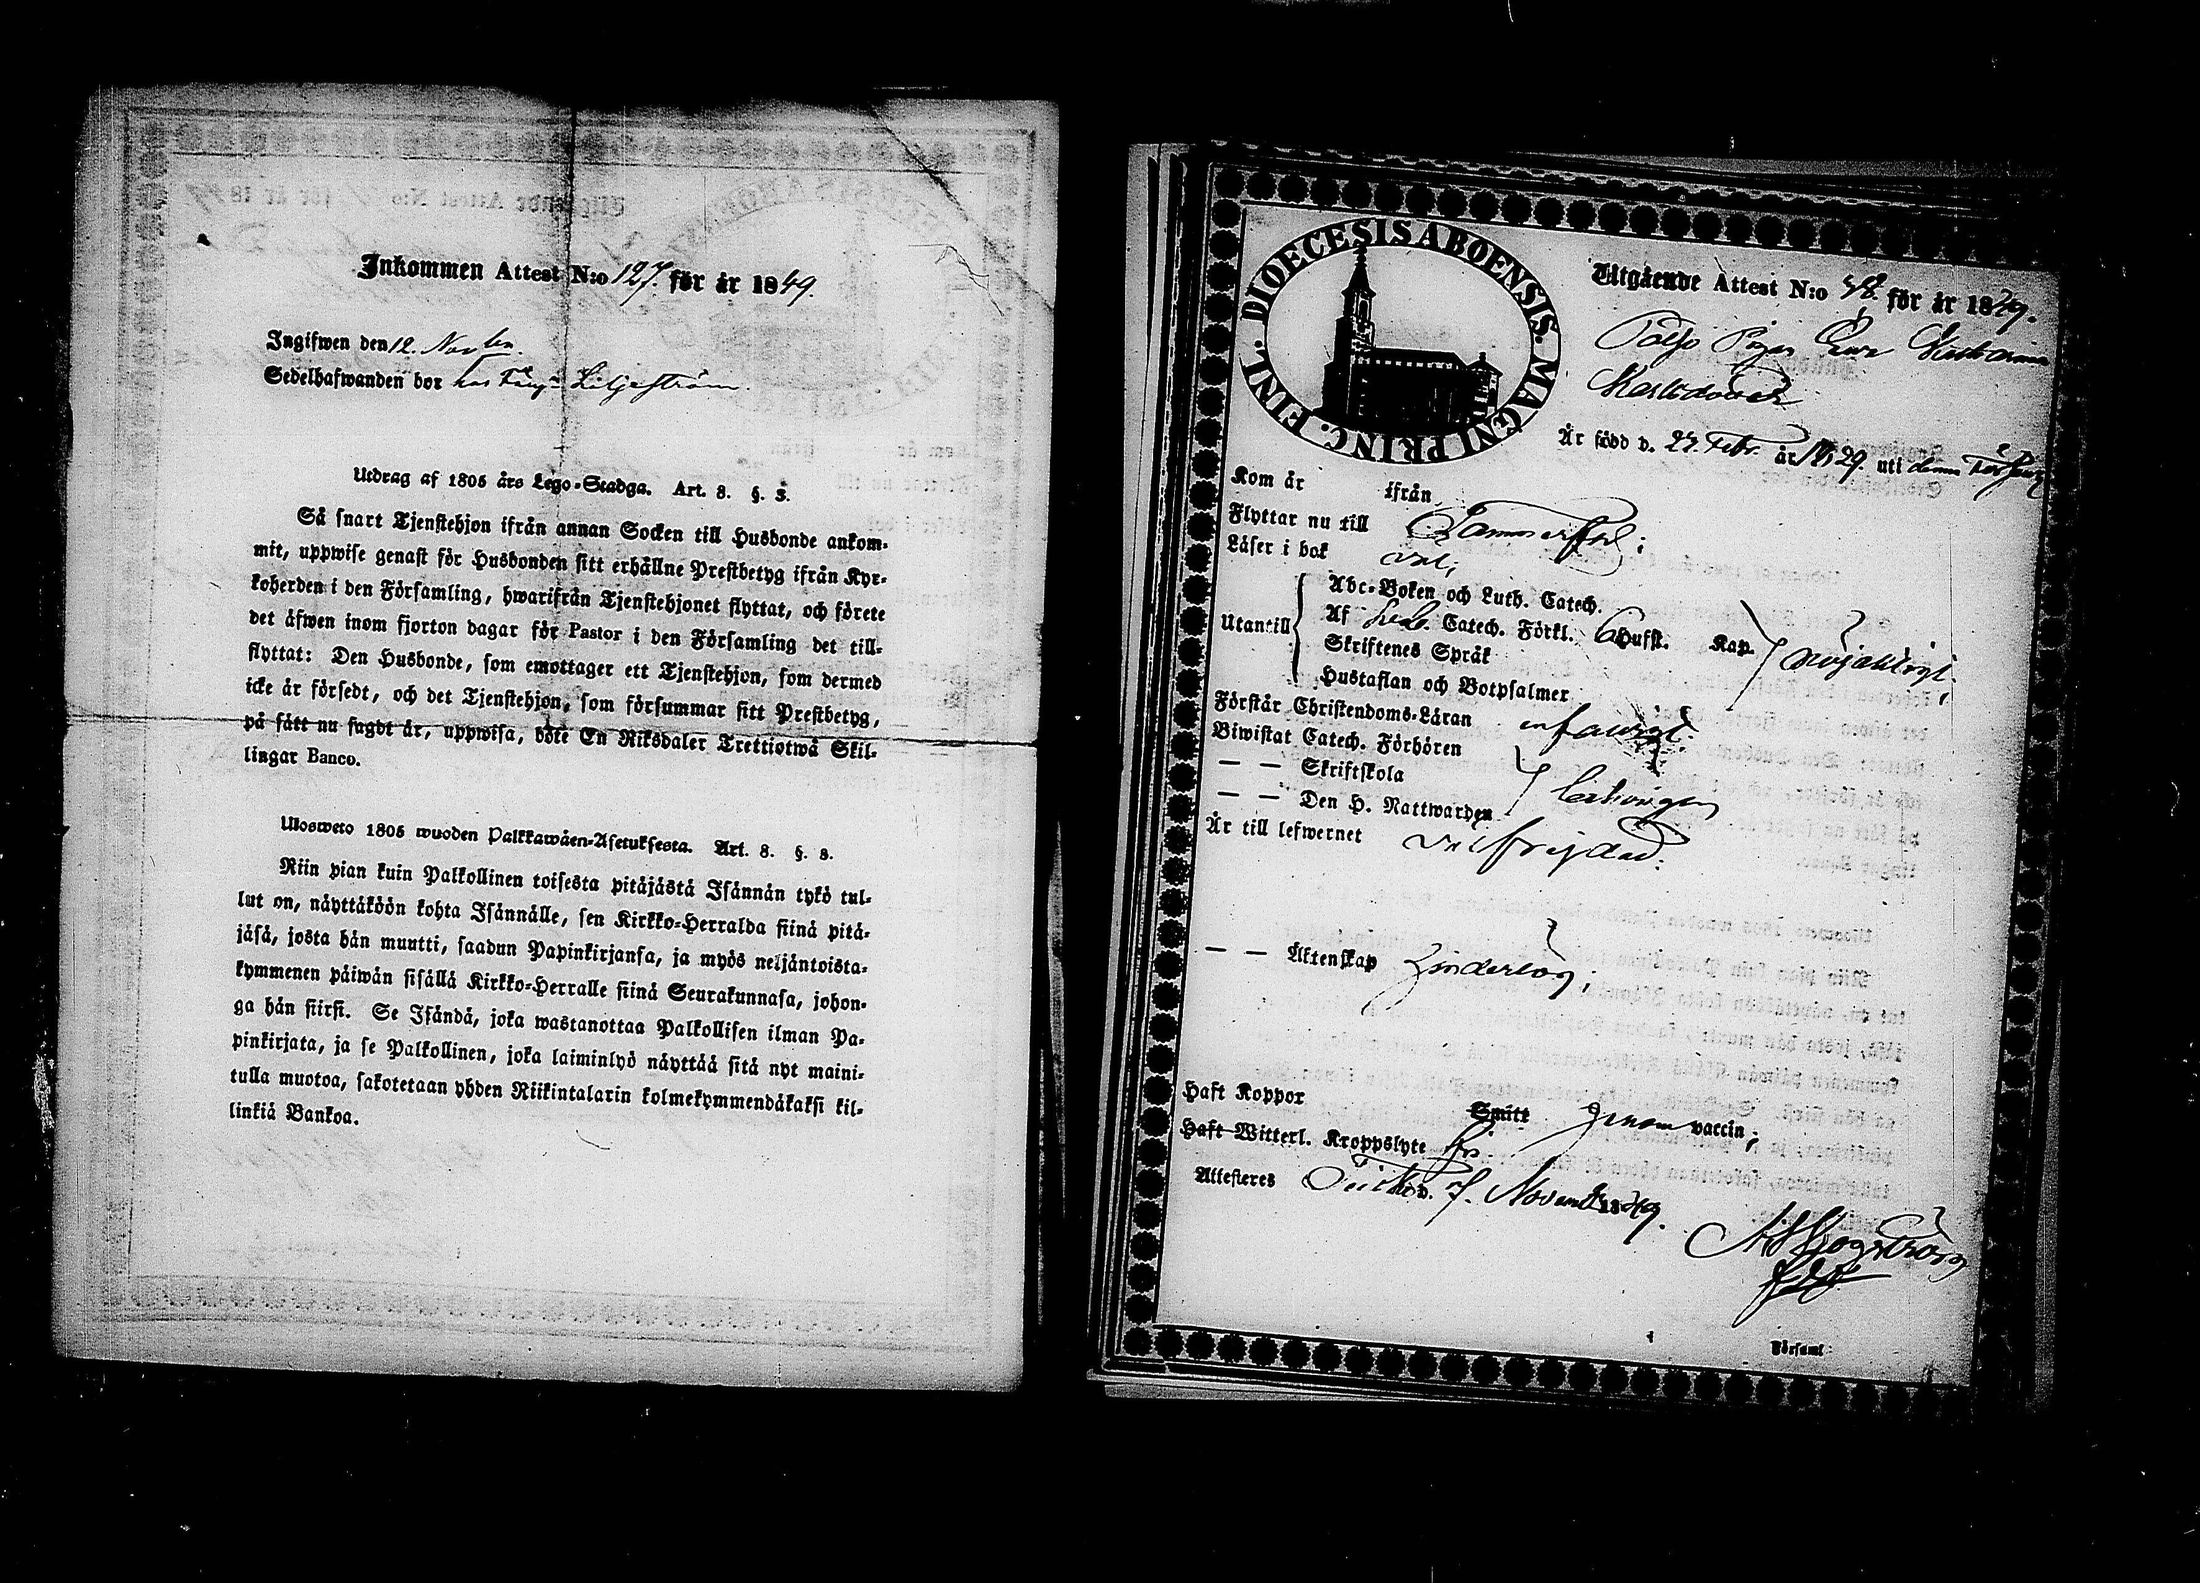 Inkommen Attest N:o 127. för år 1849.
Ingifwen den 12. Novbr.
Sedelhafwanden bor hos Liljeström.
Utdrag af 1805 års Lego-Stadga. Art. 8. §. 3.
Så snart Tjenstehjon ifrån annan Socken till Husbonde ankom-
mit, uppwise genast för Husbonden sitt erhållne Prestbetyg ifrån Kyr-
koherden i den Församling, hwarifrån Tjenstehjonet flyttat, och förete
det äfwen inom fjorton dagar för Pastor i den Församling det till-
flyttat: Den Husbonde, som emottager ett Tjenstehjon, som dermed
icke är försedt, och det Tjenstehjon, som försummar sitt Prestbetyg,
på sätt nu sagdt är, uppwisa, böte En Riksdaler Trettiotwå Skil-
lingar Banco.
Ulosweto 1805 wuoden Palkkawäen-Asetuksesta. Art. 8. §. 3.
Niin pian kuin Palkollinen toisesta pitäjästä Isännän tykö tul-
lut on, näyttäköön kohta Isännälle, sen Kirkko-Herralda siinä pitä-
jäsä, josta hän muutti, saadun Papinkirjansa, ja myös neljäntoista-
kymmenen päiwän sisällä Kirkko-Herralle siinä Seurakunnasa, johon-
ga hän siirsi. Se Isändä, joka wastanottaa Palkollisen ilman Pa-
pinkirjata, ja se Palkollinen, joka laiminlyö näyttää sitä nyt maini-
tulla muotoa, sakotetaan yhden Riikintalarin kolmekymmendäkaksi kil-
linkiä Bankoa.
DIOECESIS ABOENSIS. MAGNI PRINC. FINL.
Utgående Attest N:o 48. för år 1849.
Pigan Eva Katharina
Karlsdotter
Är född d. 27 Febr. år 1829. uti denna Förs:
Kom år ifrån
Flyttar nu till Tammerfors;
Läser i bok väl;
Abc-Boken och Luth. Catech.
Utantill Af Catech. Förkl. Hufst. Kap.
Skriftenes Språk nöjaktigt;
Hustaflan och Botpsalmer
Förstår Christendoms-Läran enfaldigt.
Biwistat Catech. Förhören
— — Skriftskola behörigen
— — Den H. Nattwarden
Är till lefwernet välfrejdad:
— — Äktenskap
Haft Koppor Smitt genom vaccin;
Haft Witterl. Kroppslyte fri.
Attesteres d. 7. November 1849.
Församl: